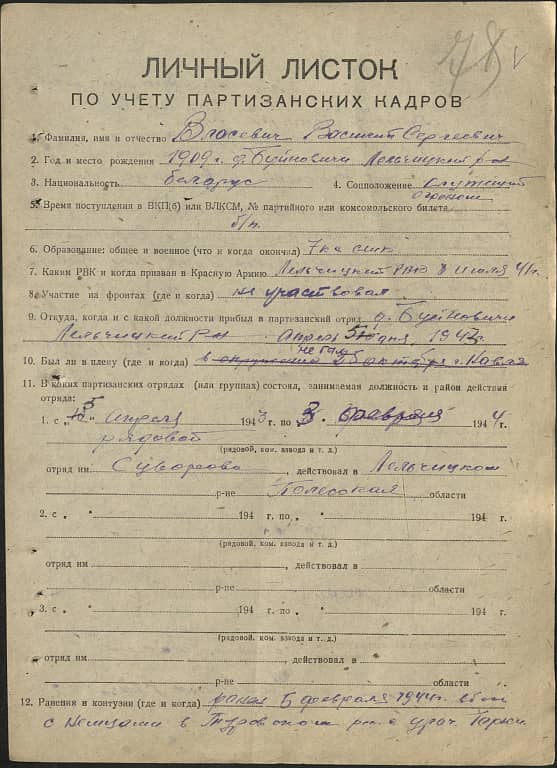 78 V
ЛИЧНЫЙ ЛИСТОК
ПО УЧЕТУ ПАРТИЗАНСКИХ КАДРОВ
1. Фамилия, имя и отчество Власевич Василий Сергеевич
2. Год и место рождения 1909 г. д. Буйновичи Лельчицкий р-н
3. Национальность белорус 4. Соцположение служащий
5. Время поступления в ВКП(б) или ВЛКСМ, № партийного или комсомольского билета
б/п.
6. Образование: общее и военное (что и когда окончил) 7
7. Каким РВК и когда призван в Красную Армию Лельчицкий РВК 8 июля 41 г.
8. Участие на фронтах (где и когда) не участвовал
9. Откуда, когда и с какой должности прибыл в партизанский отряд д. Буйновичи
Лельчицкий р-н апрель 5 дня, 1943
10. Был ли в плену (где и когда) в окружении
11. В каких партизанских отрядах (или группах) состоял, занимаемая должность и район действия
отряда:
1. с " 5 " апреля 1943 г. по " 3 " февраля 1944 г.
рядовой
(рядовой, ком. взвода и т. д.)
отряд им Суворова, действовал в Лельчицком
р-не Полесская области
2. с " " 194 г. по " " 194 г.
(рядовой, ком. взвода и т. д.)
отряд им , действовал в
р-не области
3. с " " 194 г. по " " 194 г.
(рядовой, ком. взвода и т. д.)
отряд им , действовал в
р-не области
12. Ранения и контузии (где и когда) ранен 5 февраля 1944 г. в бою
с немцами в Туровском р-не уроч.